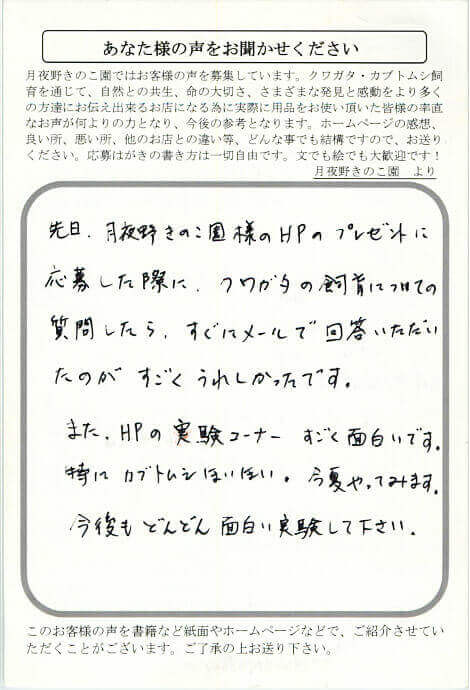 あなた様の声をお聞かせください
月夜野きのこ園ではお客様の声を募集しています。クワガタ・カブトムシ飼
育を通じて、自然との共生、命の大切さ、さまざまな発見と感動をより多く
の方達にお伝え出来るお店になる為に実際に用品をお使い頂いた皆様の率直
なお声が何よりの力となり、今後の参考となります。ホームページの感想、
良い所、悪い所、他のお店との違い等、どんな事でも結構ですので、お送り
ください。応募はがきの書き方は一切自由です。文でも絵でも大歓迎です！
月夜野きのこ園　より
先日、月夜野きのこ園様のHPのプレゼントに
応募した際に、クワガタの飼育についての
質問したら、すぐにメールで回答いただい
たのが すごく うれしかったです。
また、HPの実験コーナー すごく面白いです。
特に カブトムシほいほい。今夏やってみます。
今後も どんどん 面白い実験して下さい。
このお客様の声を書籍など紙面やホームページなどで、ご紹介させてい
ただくことがございます。ご了承の上お送り下さい。